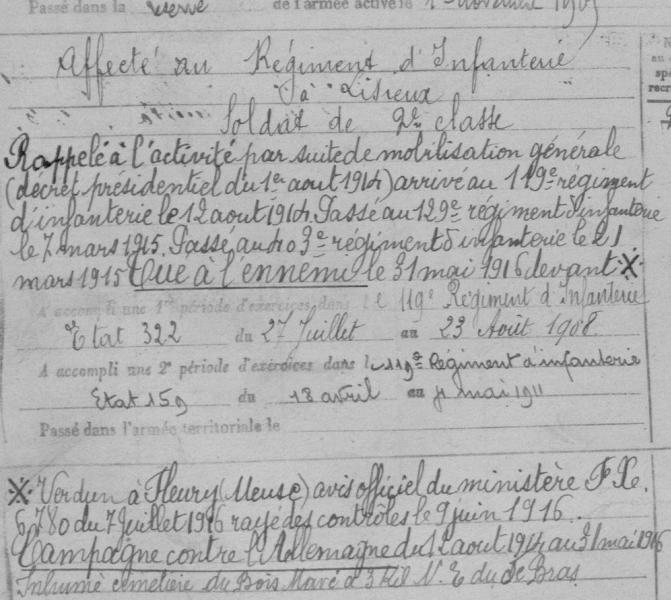 Passé dans la réserve de l'armée active le 1er novembre 190
Affecté au Régiment d'Infanterie
à Lisieux
Soldat de 2e classe
Rappelé à l'activité par suite de mobilisation générale
(décret présidentiel du 1er aout 1914) arrivé au 119e régiment
d'infanterie le 12 aout 1914. Passé au 129e régiment d'infanterie
le 7 mars 1915. Passé au 403e régiment d'infanterie le 21
mars 1915 Tué à l'ennemi le 31 mai 1916 devant ※
A accompli une 1re période d'exercices dans le 119e Régiment d'Infanterie
Etat 322 du 27 Juillet au 23 Août 1908
A accompli une 2e période d'exercices dans le 119e Régiment d'infanterie
Etat 159 du 18 avril au mai 1911
Passé dans l'armée territoriale le
※ Verdun à Fleury (Meuse) avis officiel du ministère F.X.
6.780 du 7 Juillet 1916 rayé des contrôles le 9 juin 1916.
Campagne contre l'Allemagne du 12 aout 1914 au 31 mai 1916
Inhumé cimetière du Bois à 3 Kil N.E du de Bras